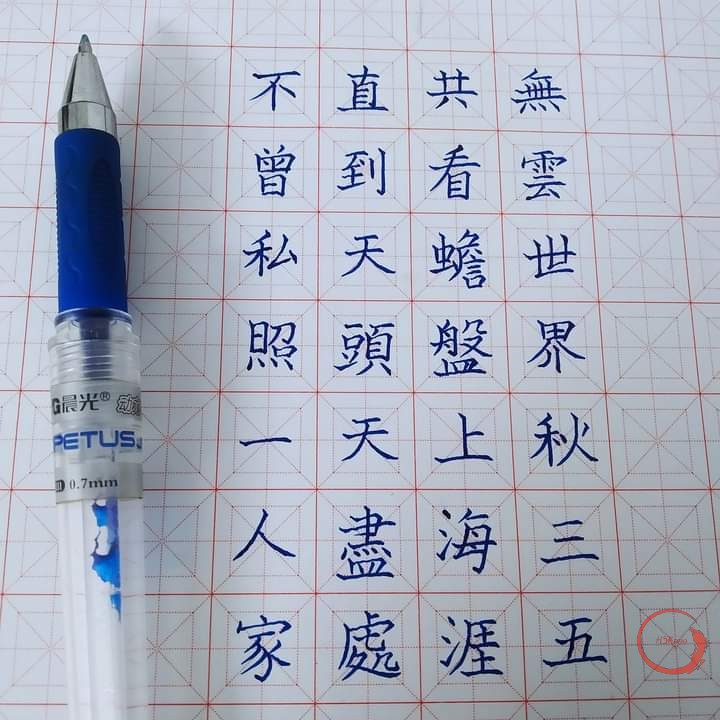 無雲世界秋三五
共看蟾盤上海涯
直到天頭天盡處
不曾私照一人家
晨光®
PETUS
0.7mm